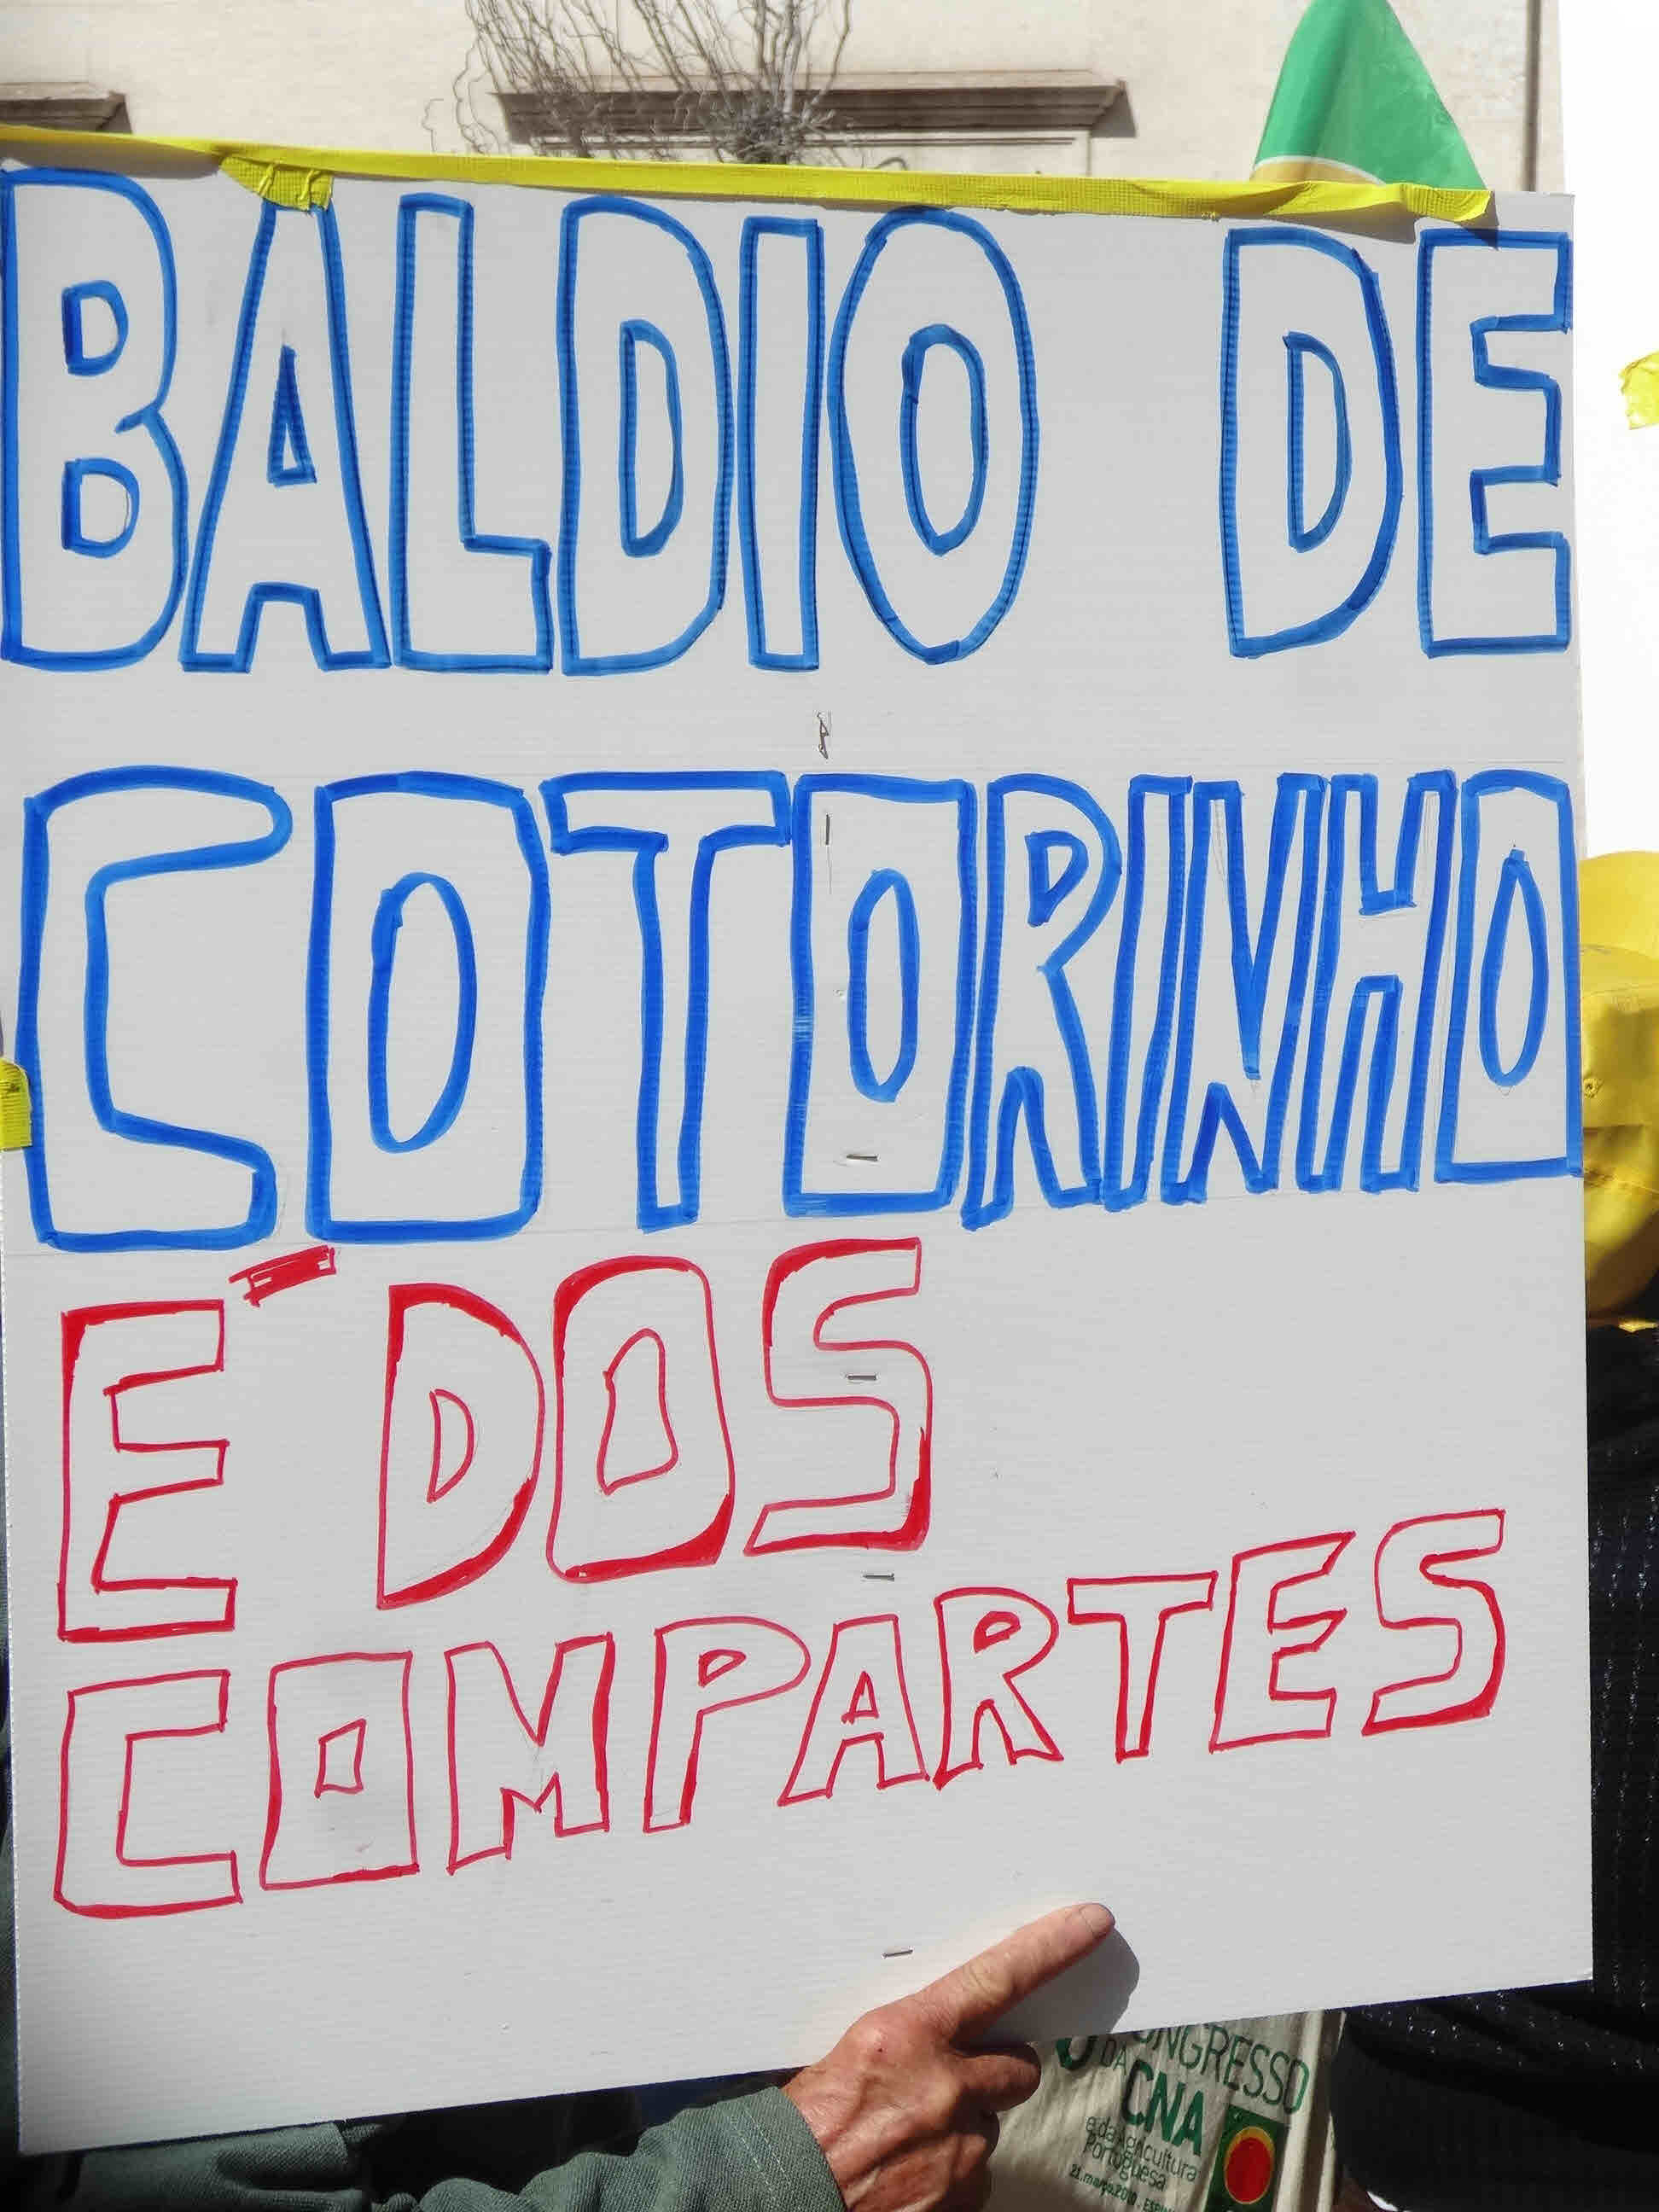 BALDIO DE
COTORINHO
É DOS
COMPARTES
CONGRESSO
DA
CNA
e da Agricultura
Portuguesa